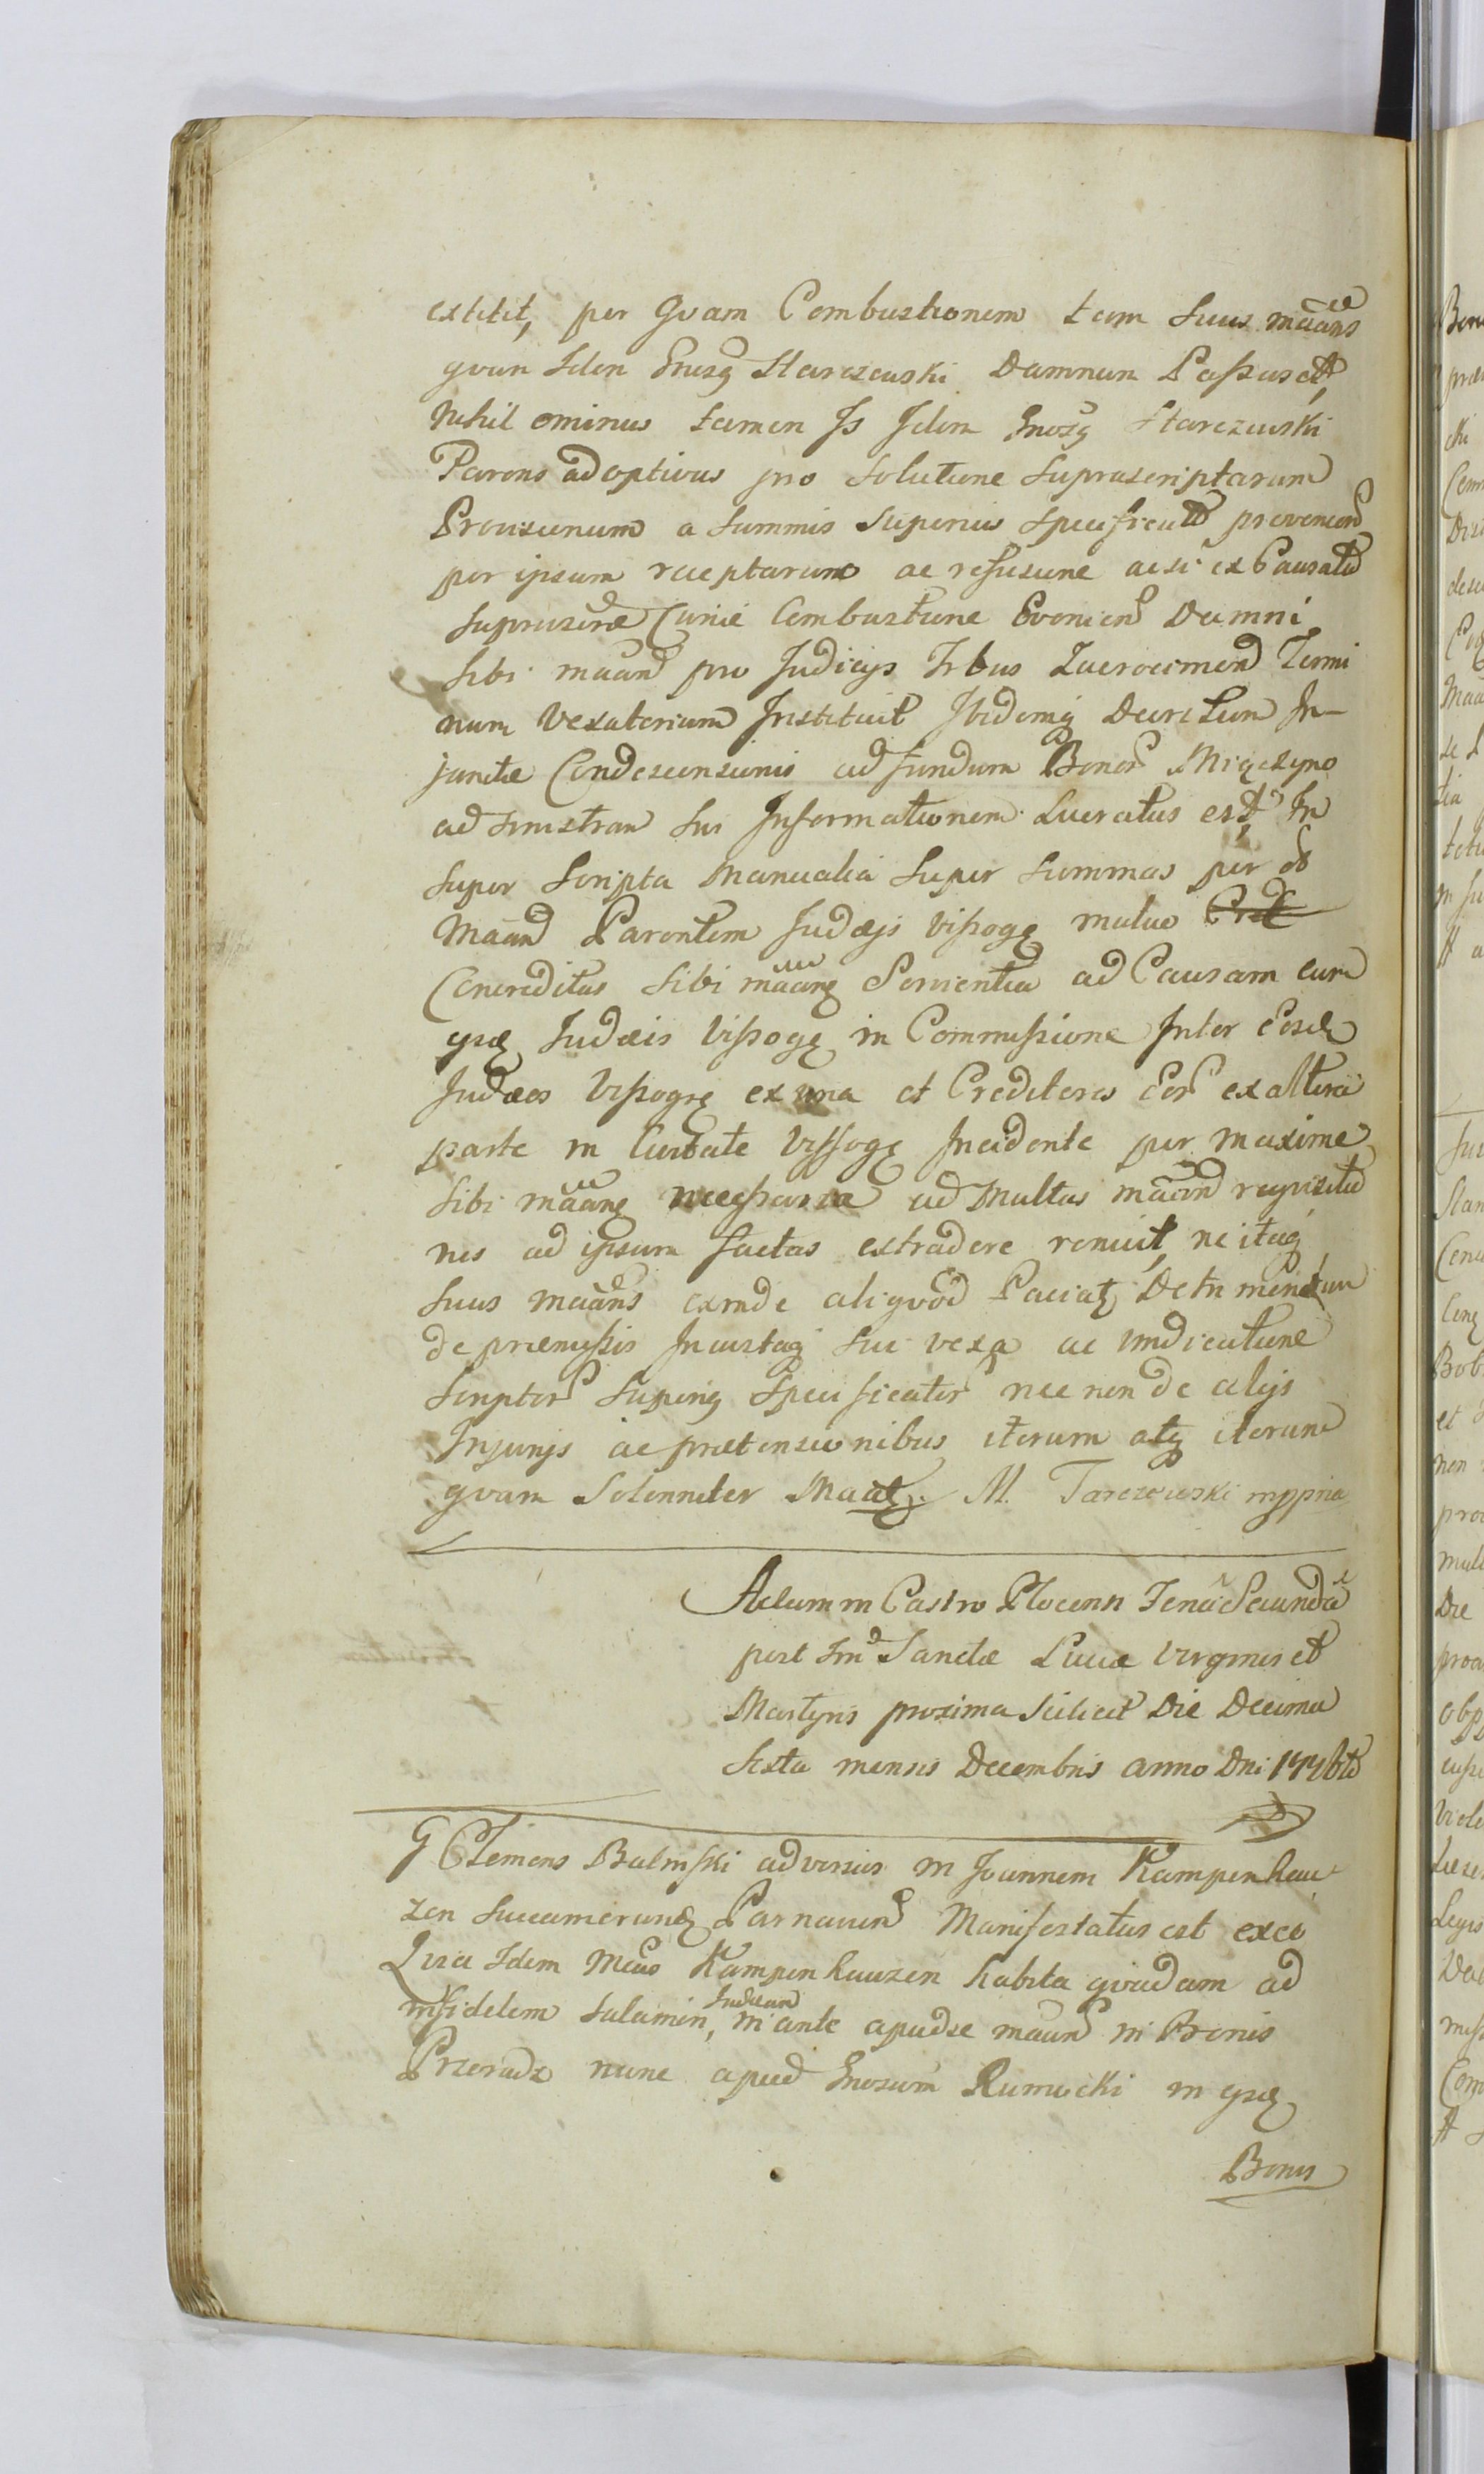 extitit, per Qvam Combustionem tam Suus mãans
qvan Idem Gnosq Starczewski Damnum Passus est,
Nihil ominus tamen Is Idem Gnosq Starczewski
Parens adoptivus pro Solutione Suprascriptarum
Provisionum a Summis Superius Specificatis provenien
per ipsum receptarum ac refusione acsi ex Causatu
Suprascrae Curiae Combustione Evenien Damni
Sibi maand pro Judicys Trbus Termi
num Vexatorium Instituit Ibidemq Decretum In-
junctae Condescensionis ad fundum Bonor Mięczyno
ad sinistram Sui Informationem Lucratus est, In
Super Scripta Manualia Super Summas per
Maand Parentem Judaejs Vissogę mutuo
Concreditas Sibi mãanq Servientia ad Causam cum
ysq Judaeis Vissogę in Commissione Inter Eosd
Judaeos Vissogrę ex una et Creditores Eor ex altera
parte in Civitate Vissogę Incidente per maxime
Sibi mãanq necessaria ad Multas mãand reqvisitio
nes ad ipsum factas extradere renuit, ne itaq
Suus maans exinde aliqvod Paciat Detrimentum
de praemissis Incustaq Sui vexa ac vindicatione
Scriptor Superiq Specificator nec non de alijs
Injurijs ac praetensionibus iterum atq iterum
qvam Solenniter Maat. M. Tarczewski mppria
Actum in Castro Plocensi Feria Secunda
post Fm Sanctae Luciae Virginis et
Martyris proxima Scilicet Die Decima
Sexta mensis Decembris anno Dni
G Clemens Balinski adversus M Joannem Kampenhau
zen Succamerariq Parnavien Manifestatus est exeo
Qvia Idem Mcus Kampenhauzen habita qvadam ad
infidelem Salamin, Judaeum in ante apud se maan in Bonis
Przeradz nunc apud Gnosum Rumocki in ysq
Bonis